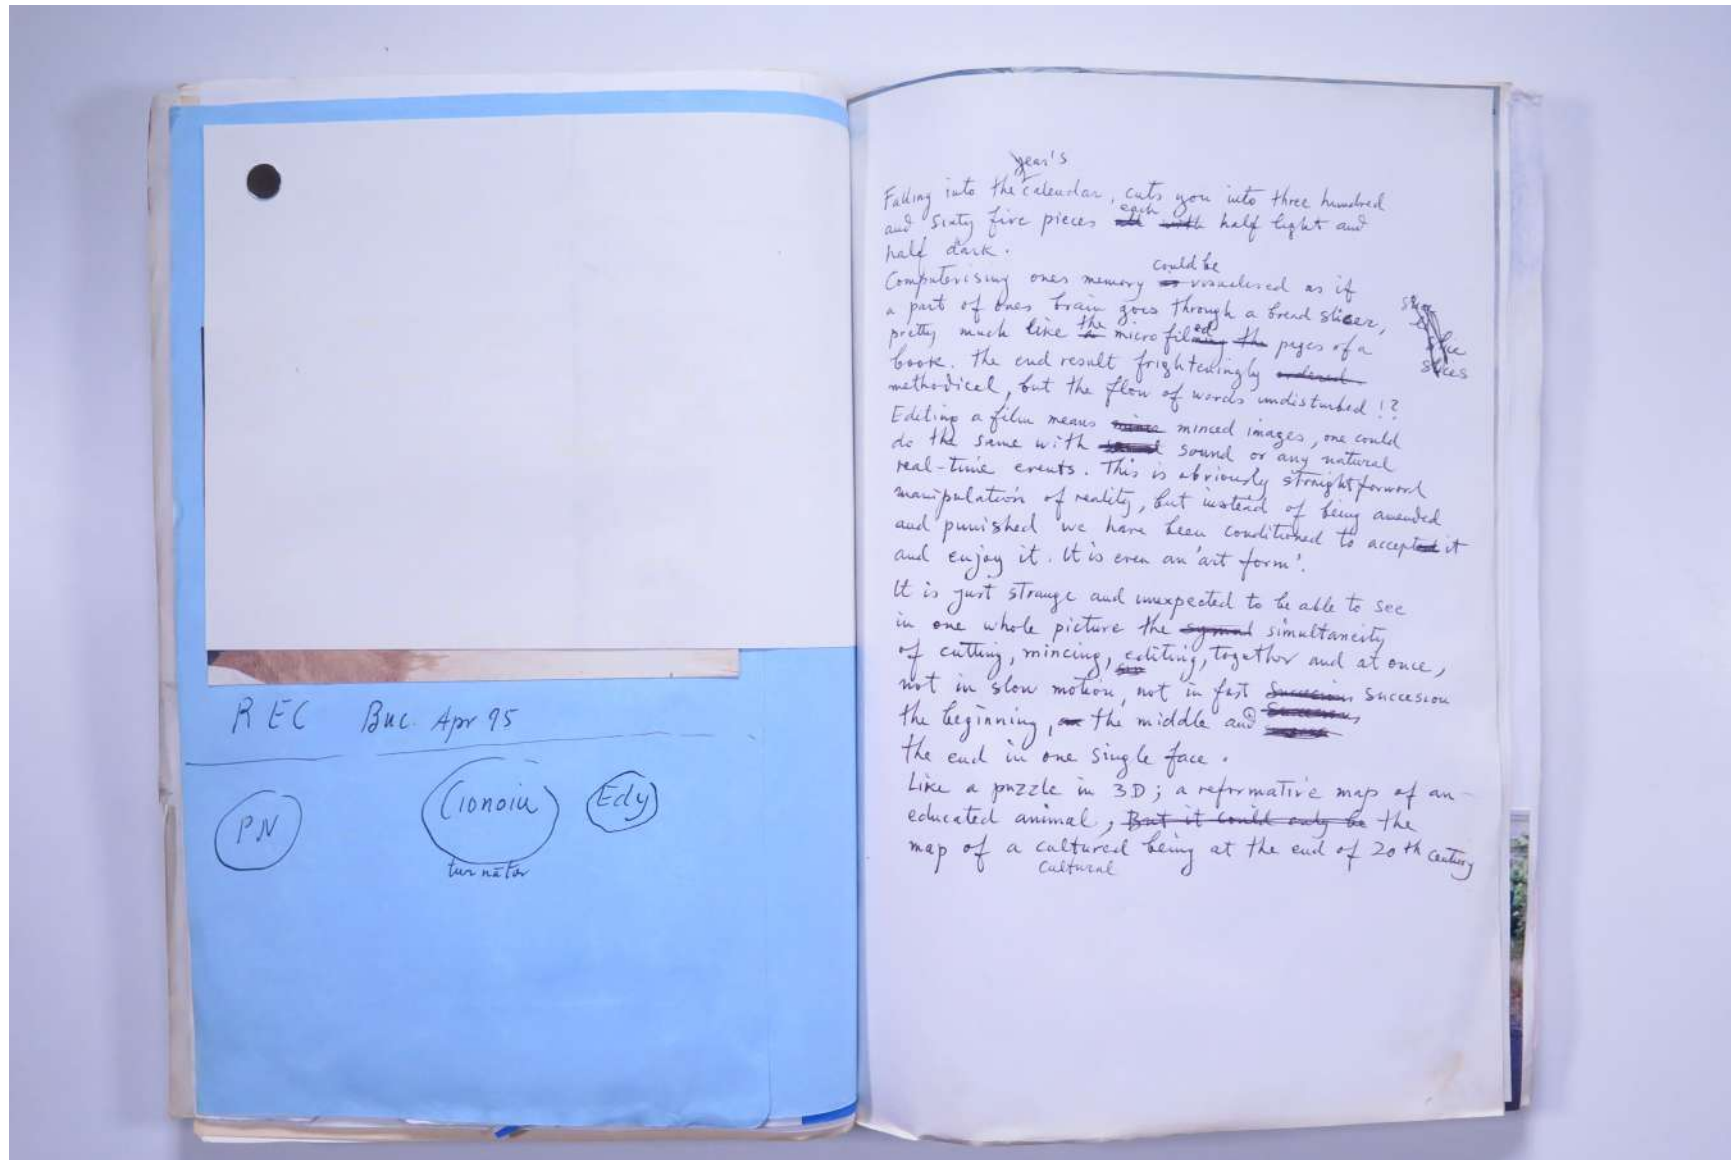 REC Buc. Apr 95
PN
Cionoiu
Edy
turnator
year's
Falling into the calendar, cuts you into three hundred
and sixty five pieces each half light and
half dark.
could be
Computerising ones memory visualised as if
a part of ones brain goes through a bread slicer,
pretty much like the microfilmed pages of a
book. The end result frighteningly
slices
methodical, but the flow of words undisturbed !?
Editing a film means minced images, one could
do the same with sound or any natural
real-time events. This is obviously straightforward
manipulation of reality, but instead of being amended
and punished we have been conditioned to accept it
and enjoy it. It is even an 'art form'.
It is just strange and unexpected to be able to see
in one whole picture the simultaneity
of cutting, mincing, editing, together and at once,
not in slow motion, not in fast succesion
the beginning, the middle and
the end in one single face.
Like a puzzle in 3D; a reformative map of an
educated animal, But it could only be the
map of a cultured being at the end of 20th century
cultural